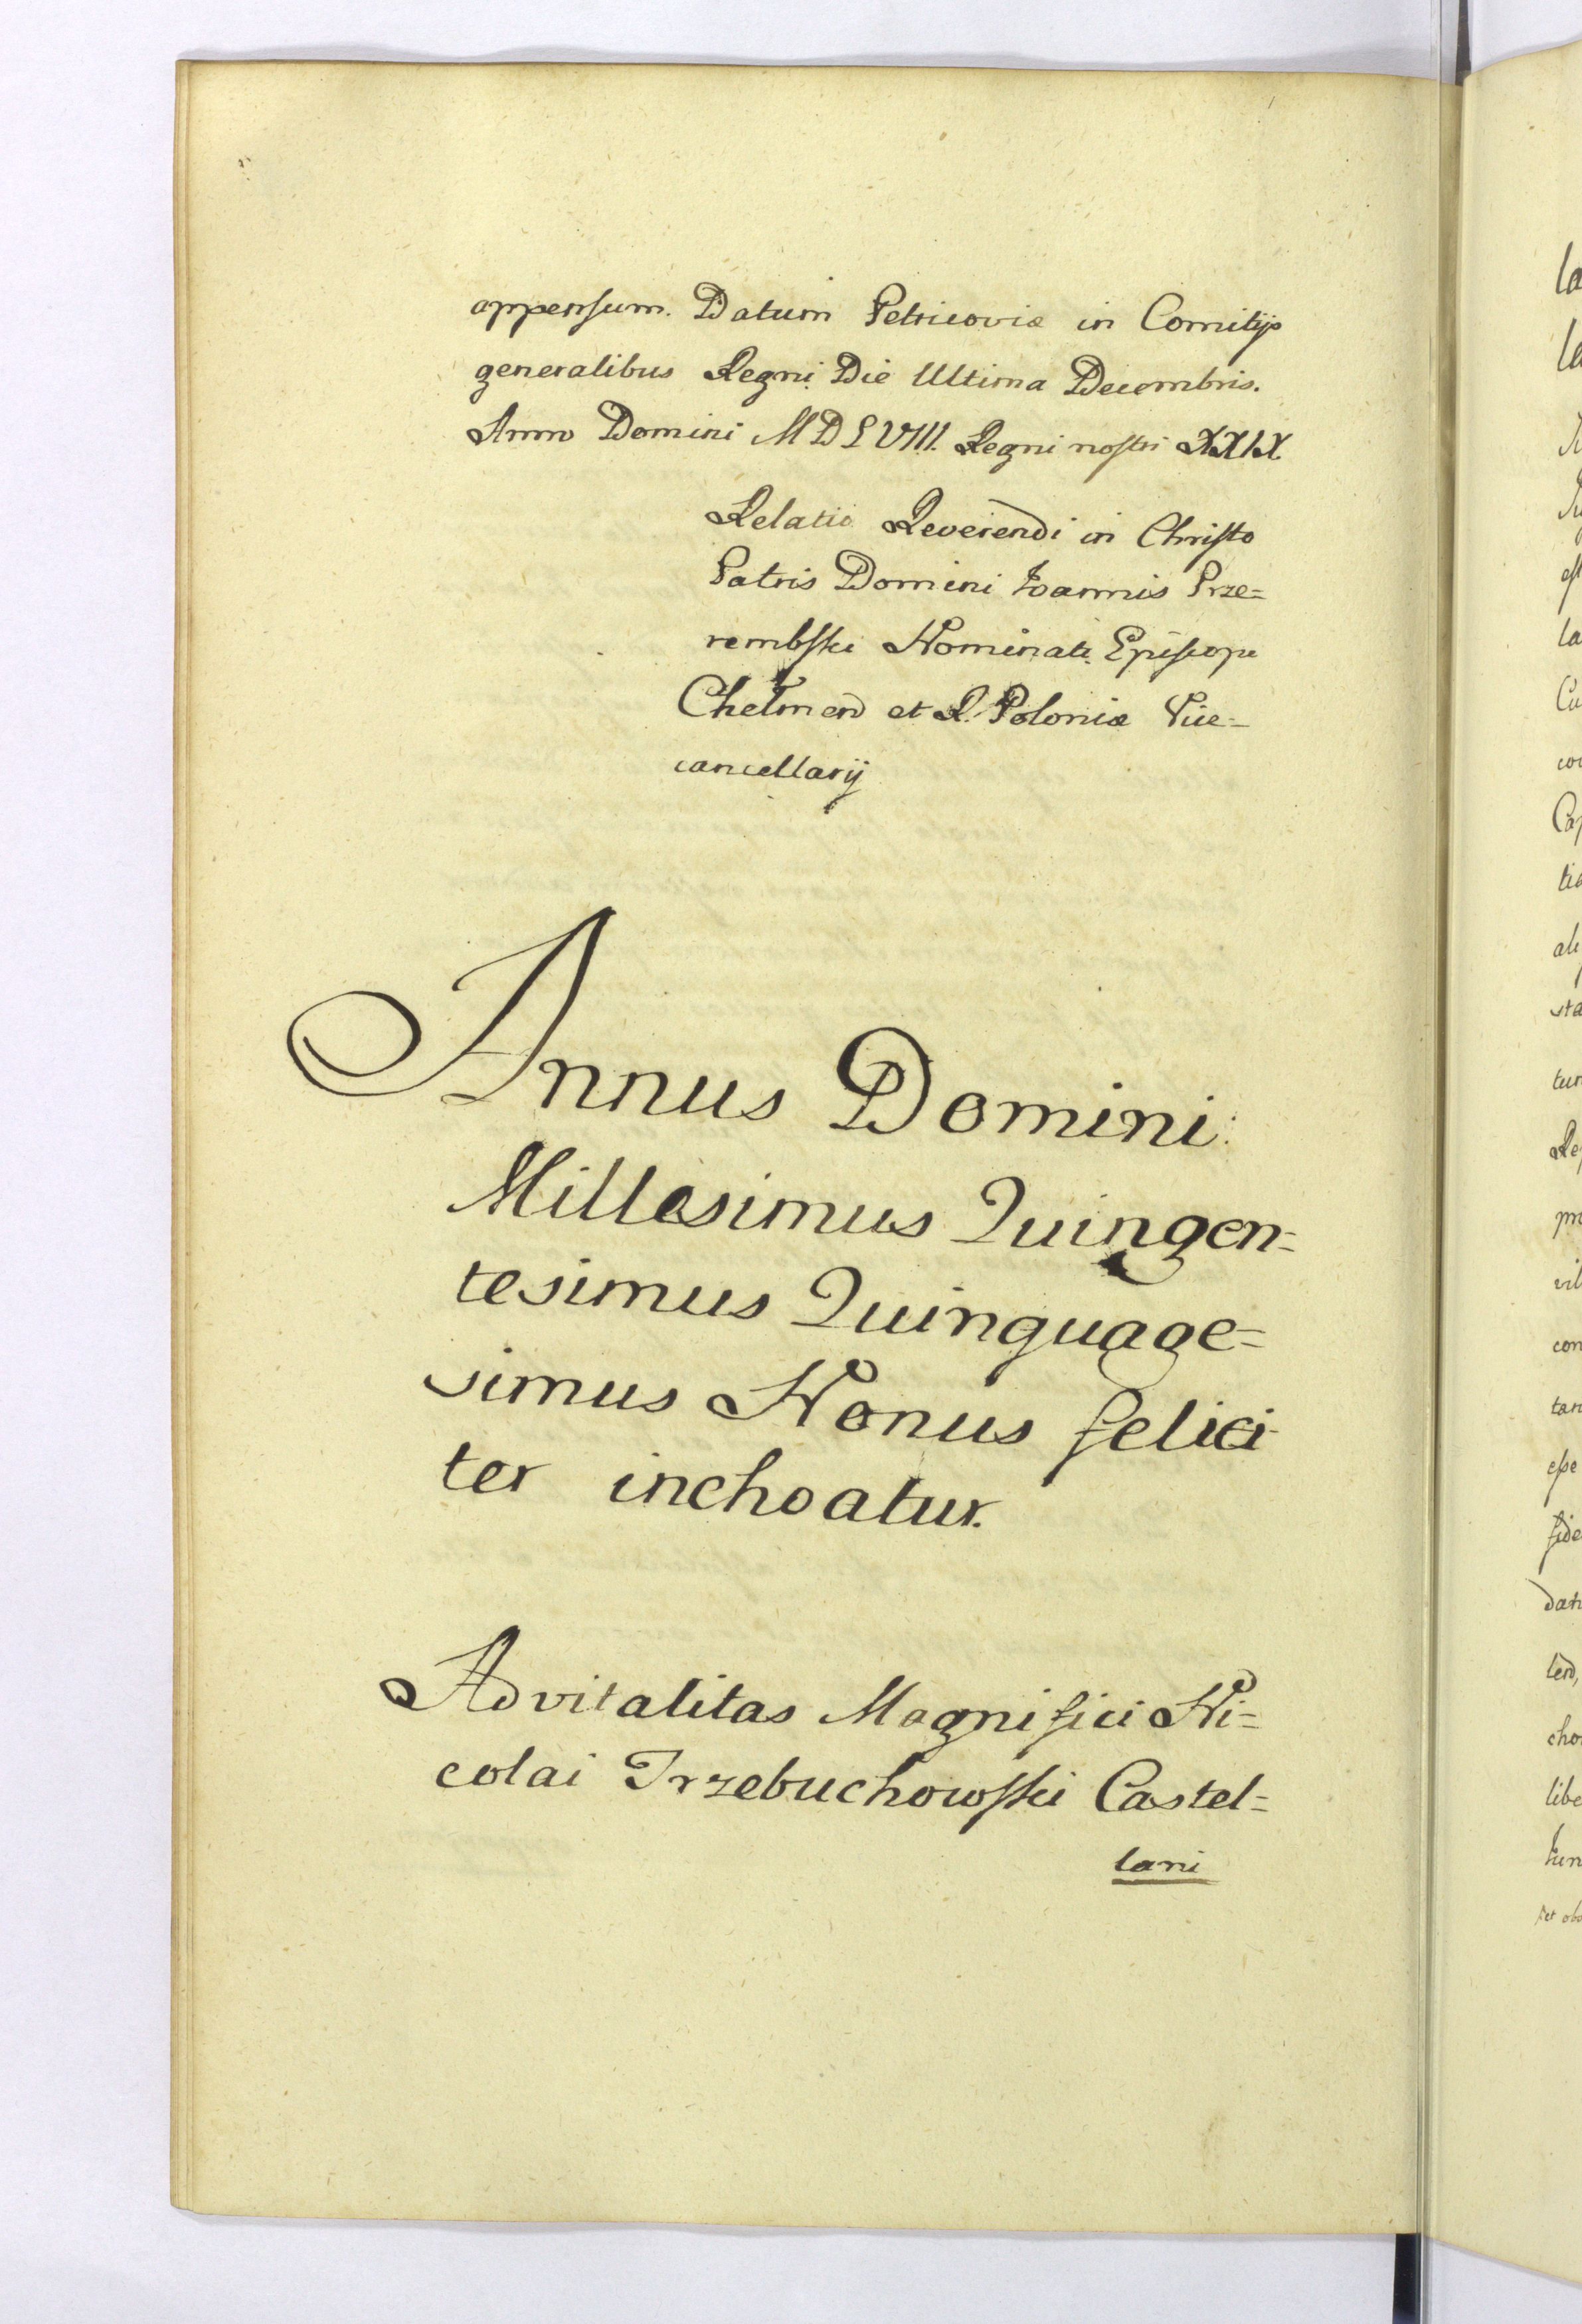 appensum. Datum Petricoviæ in Comitijs
generalibus Regni Die Ultima Decembris.
Anno Domini MDLVIII. Regni nostri XXIX
Relatio Reverendi in Christo
Patris Domini Ioannis Prze=
rembski Nominati Episcopi
Chelmen et R. Poloniæ Vice=
cancellarij
Annus Domini
Millesimus Quingen=
tesimus Quinquage=
simus Nonus felici
ter inchoatur.
Advitalitas Magnifici Ni=
colai Trzebuchowski Castel=
lani